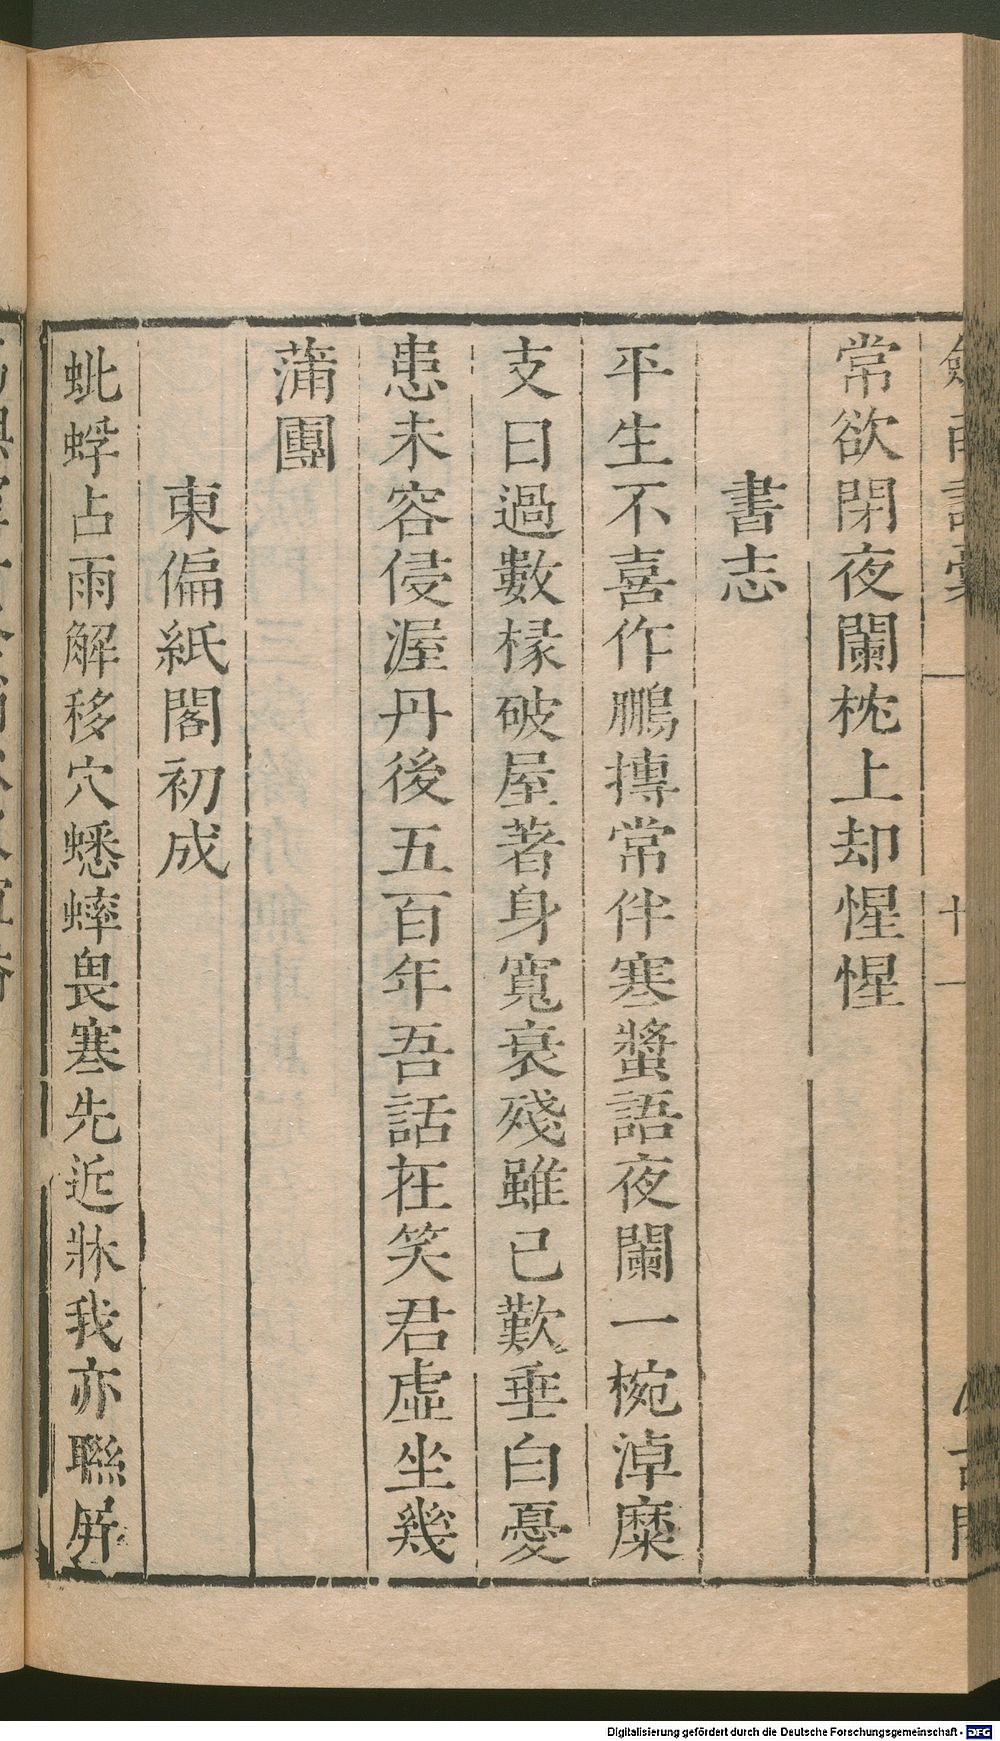 常欲閉夜闌枕上却惺惺
書志
平生不喜作鵬摶常伴寒螿語夜闌一椀淖糜
支日過數椽破屋著身寬衰殘雖已歎垂白憂
患未容侵渥丹後五百年吾話在笑君虛坐幾
蒲團
東偏紙閣初成
蚍蜉占雨解移穴蟋蟀畏寒先近牀我亦聯屏
Digitalisierung gefördert durch die Deutsche Forschungsgemeinschaft - DFG